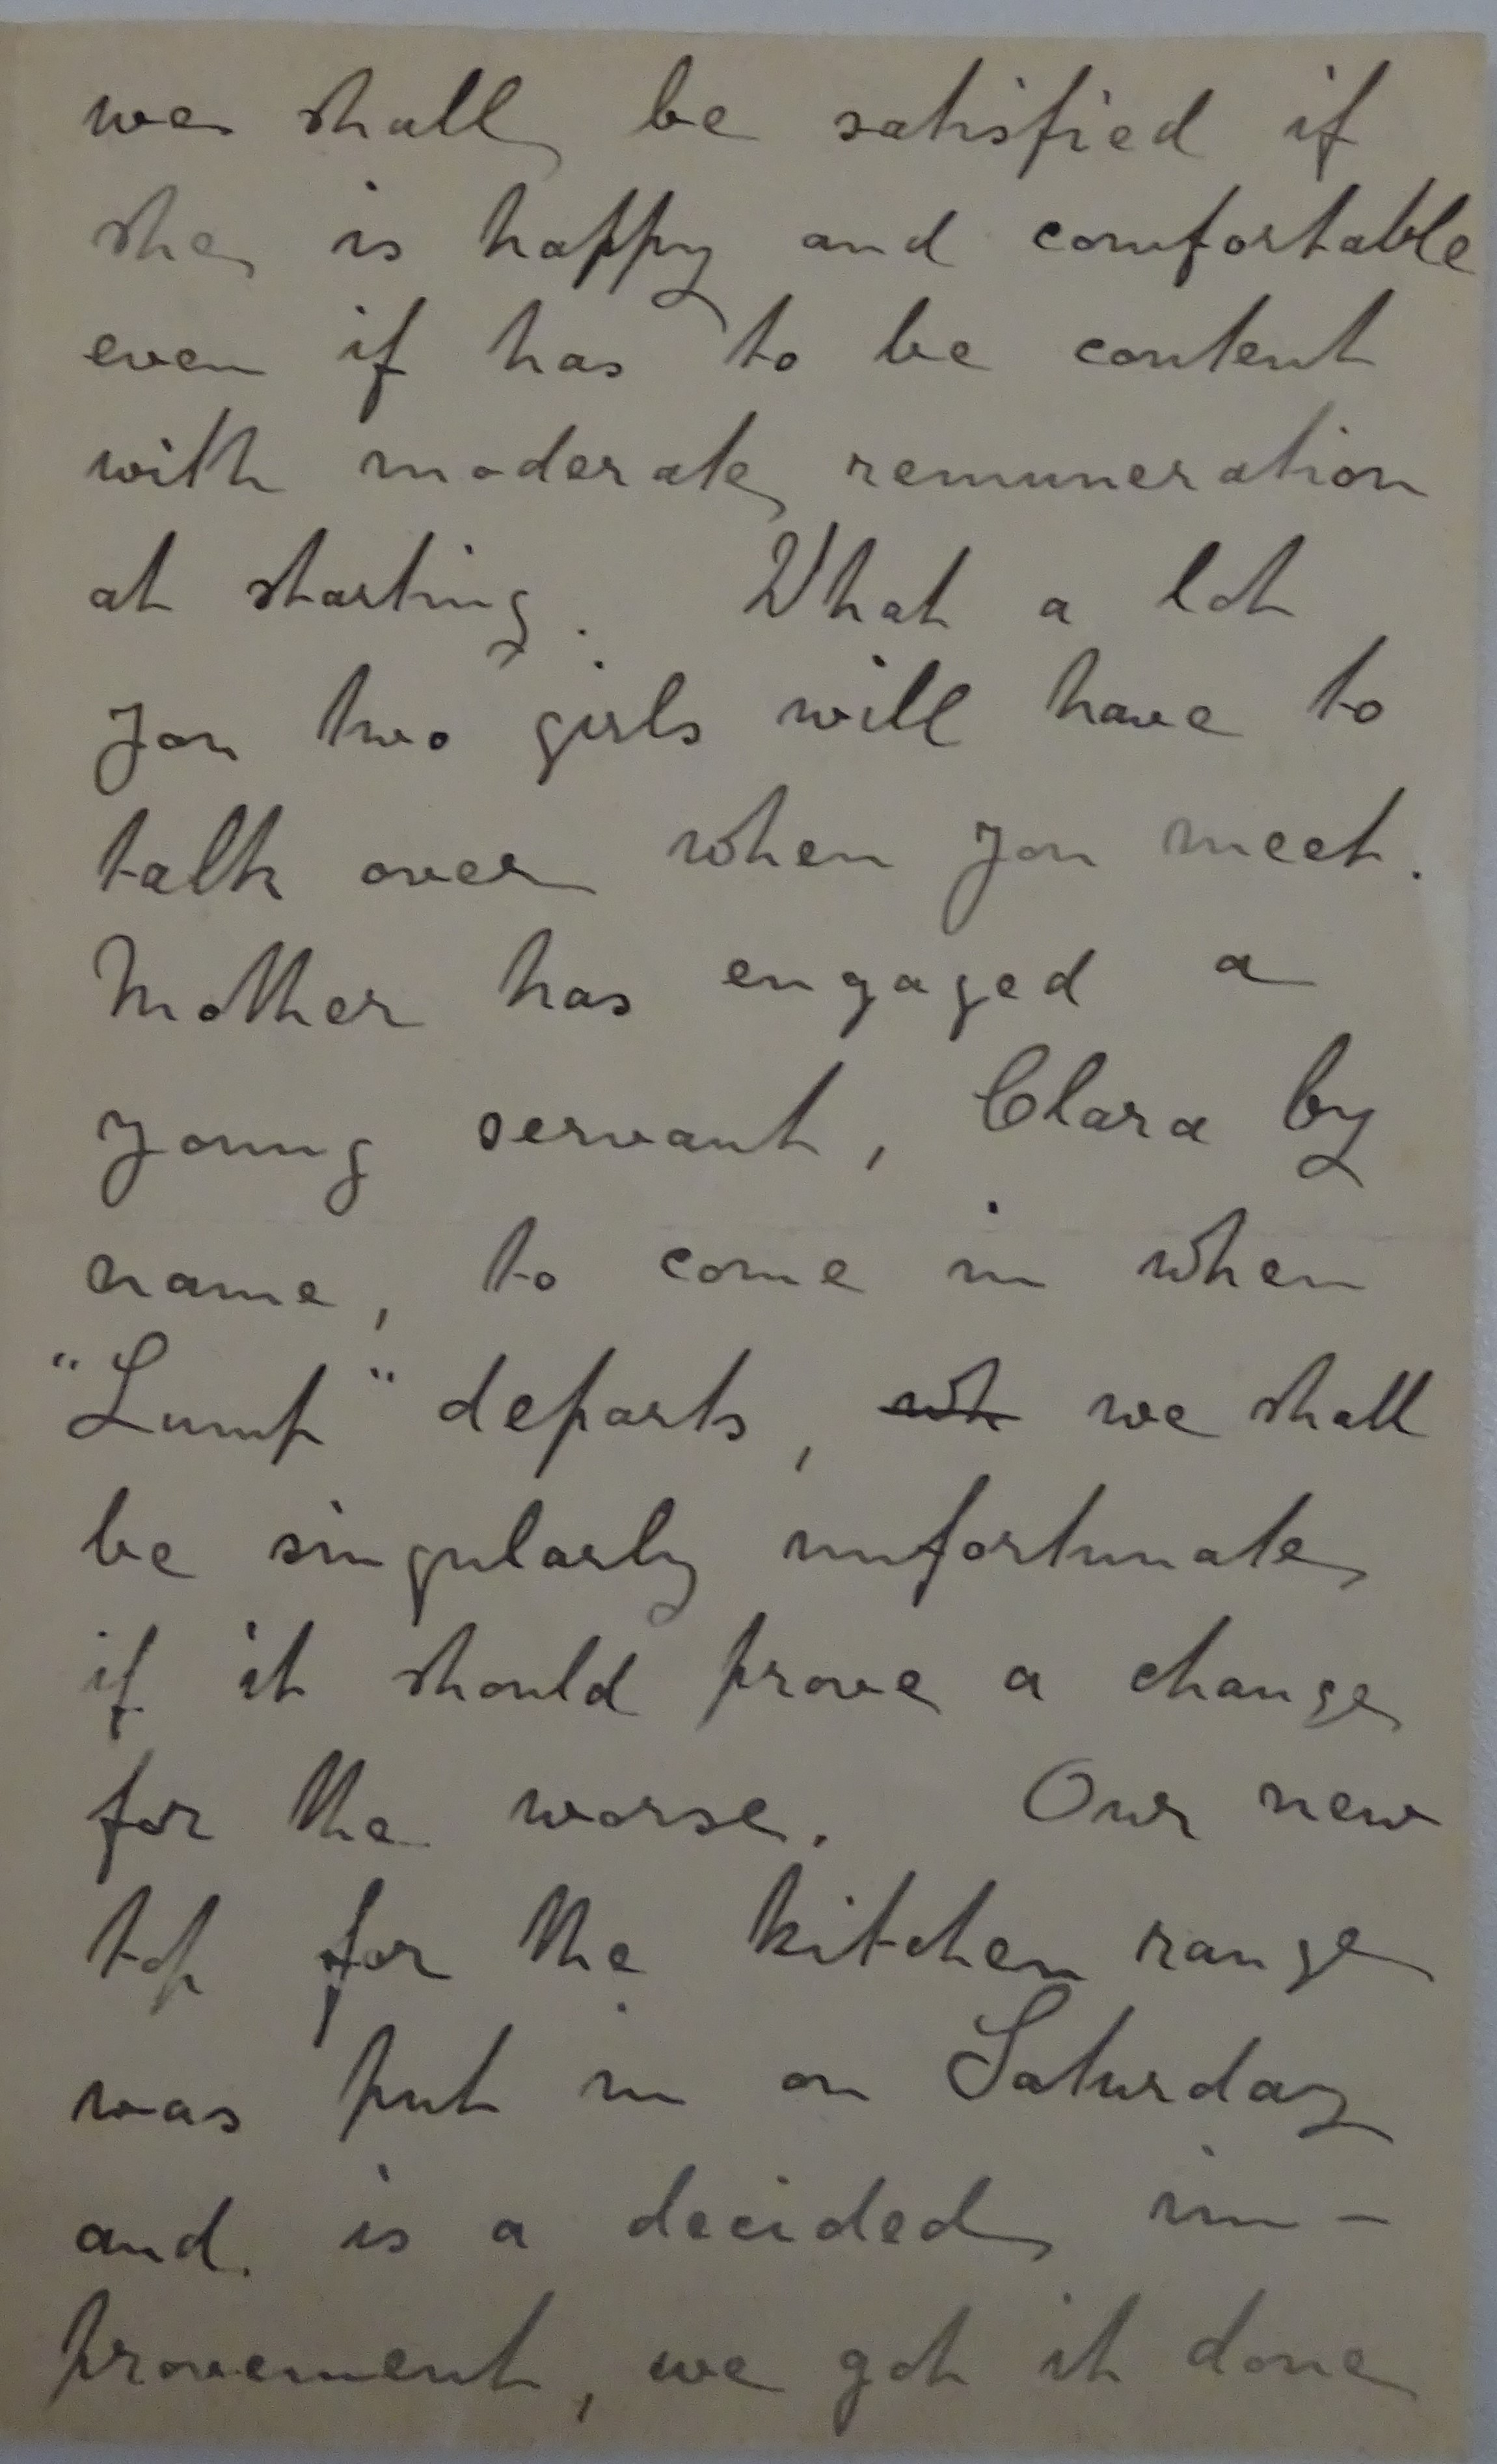 we shall be satisfied if
she is happy and comfortable
even if has to be content
with moderate remuneration
at starting. What a lot
you two girls will have to
talk over when you meet.
Mother has engaged a
young servant, Clara by
name, to come in when
"Lump" departs, wh we shall
be singularly unfortunate
if it should prove a change
for the worse. Our new
top for the kitchen range
was put in on Saturday
and is a decided im-
provement, we got it done